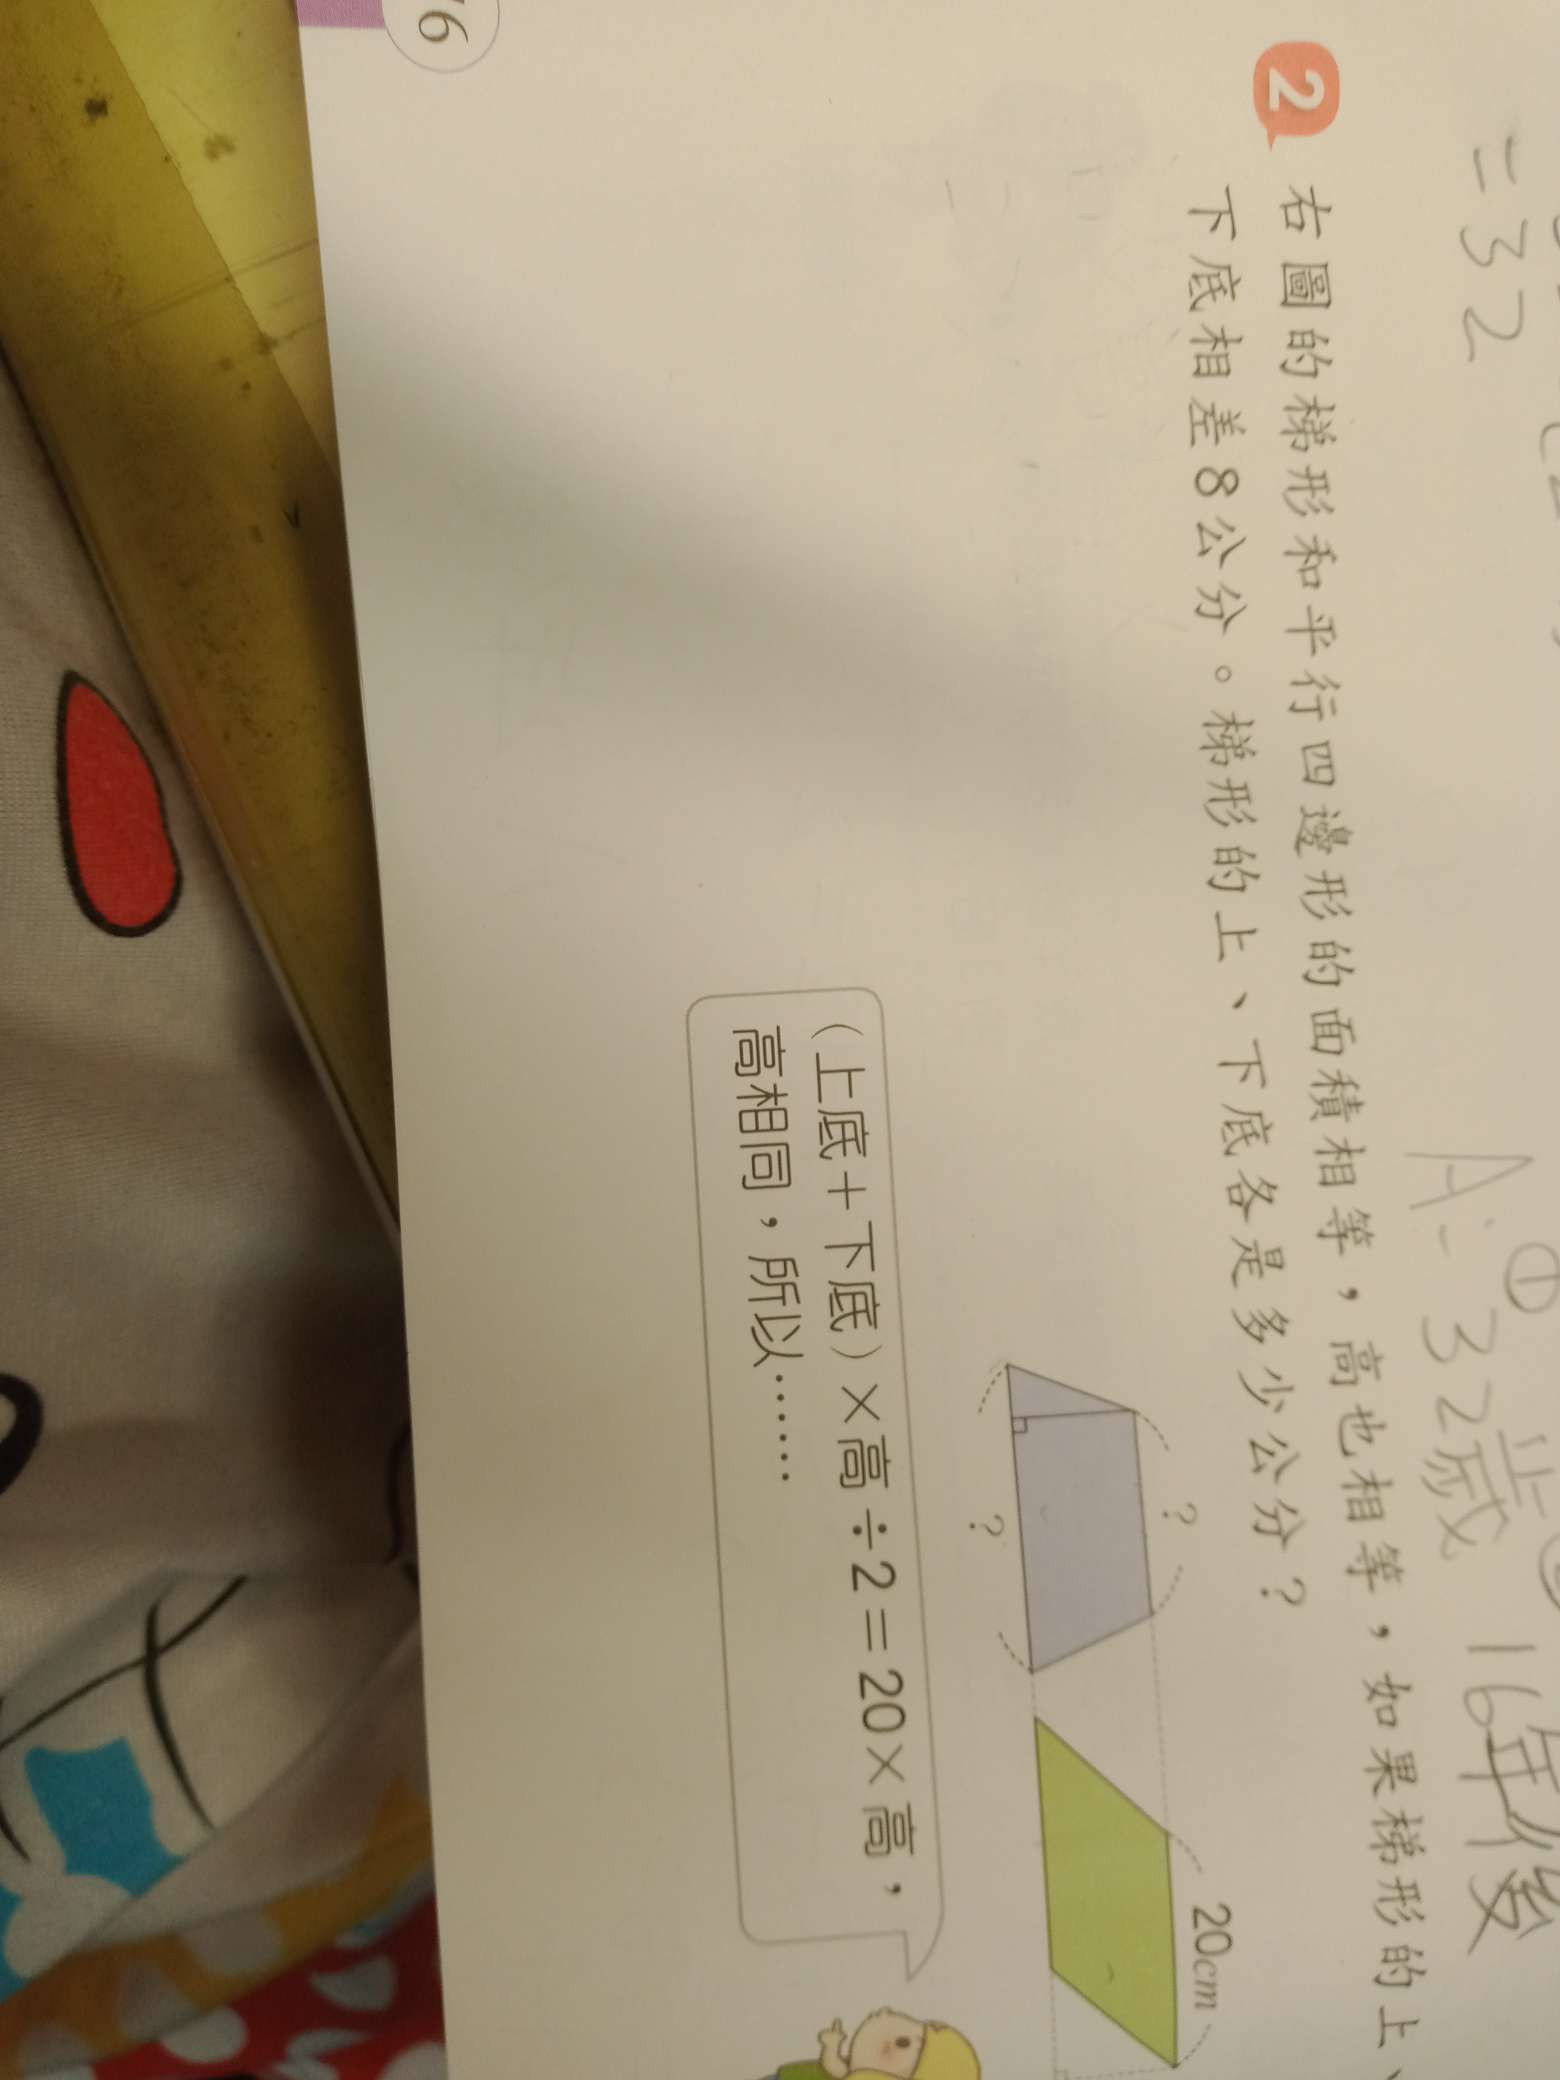 =32
A:①32歲
16年後
2 右圖的梯形和平行四邊形的面積相等，高也相等，如果梯形的上、
下底相差8公分。梯形的上、下底各是多少公分？
?
20cm
?
（上底＋下底）×高÷2＝20×高，
高相同，所以……
76